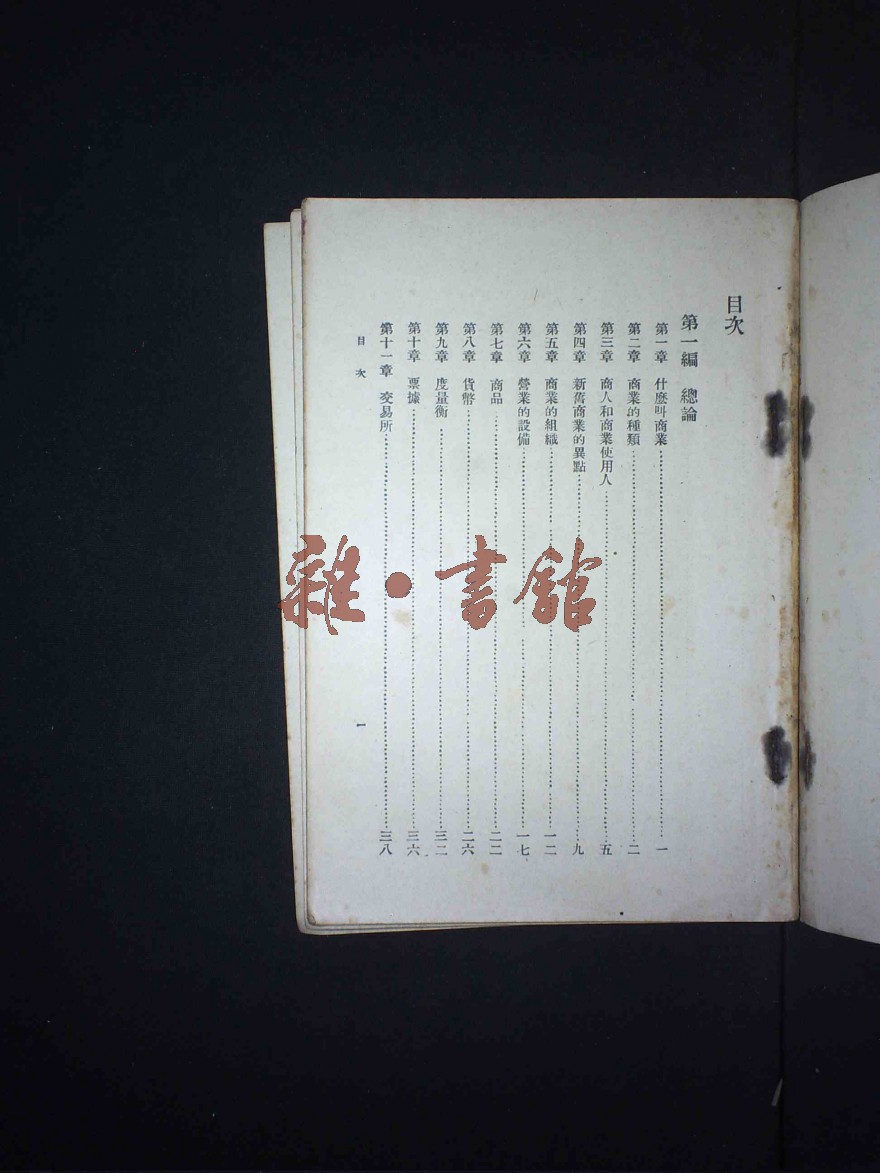 目次
第一編　總論
第一章　什麽叫商業……一
第二章　商業的種類……二
第三章　商人和商業使用人……五
第四章　新舊商業的異點……九
第五章　商業的組織……一二
第六章　營業的設備……一七
第七章　商品……二二
第八章　貨幣……二六
第九章　度量衡……三二
第十章　票據……三六
第十一章　交易所……三八
目次
一
雜·書館